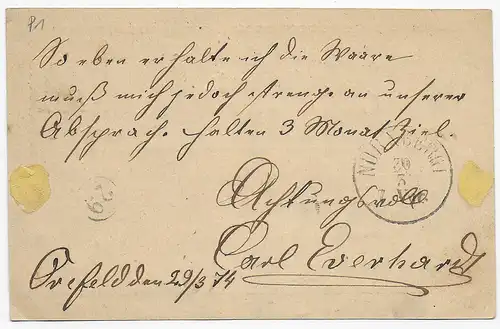 So eben erhalte ich die Waare
muß mich jedoch strenge an unserer
Absprache halten 3 Monat Ziel.
Achtungsvoll
Carl Everhardt
Crefeld den 29/3 74